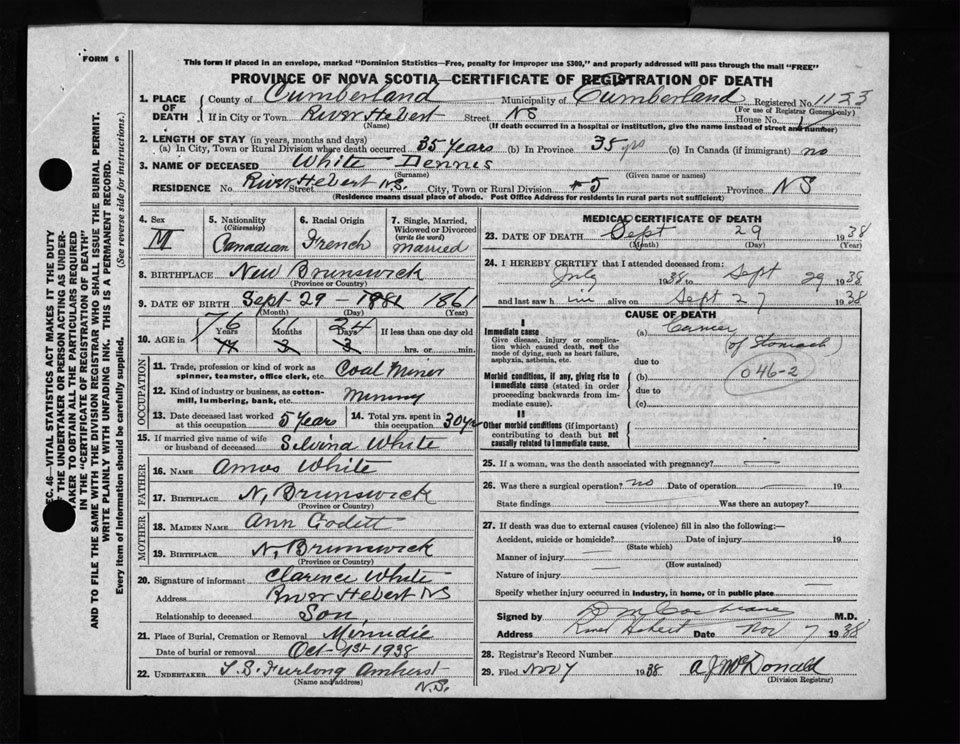 FORM 6
This form if placed in an envelope, marked "Dominion Statistics—Free, penalty for improper use $300," and properly addressed will pass through the mail "FREE"
PROVINCE OF NOVA SCOTIA—CERTIFICATE OF REGISTRATION OF DEATH
1. PLACE OF DEATH { County of Cumberland Municipality of Cumberland Registered No. 1123
(For use of Registrar General only)
If in City or Town River Hebert Street NS House No.
(Name) (If death occurred in a hospital or institution, give the name instead of street and number)
2. LENGTH OF STAY (in years, months and days)
(a) In City, Town or Rural Division where death occurred 35 Years (b) In Province 35 yrs (c) In Canada (if immigrant) no
3. NAME OF DECEASED White Dennis
(Surname) (Given name or names)
RESIDENCE No. River Hebert N.S. Street City, Town or Rural Division #5 Province NS
(Residence means usual place of abode. Post Office Address for residents in rural parts not sufficient)
4. Sex M
5. Nationality (Citizenship) Canadian
6. Racial Origin French
7. Single, Married, Widowed or Divorced (write the word) Married
8. BIRTHPLACE New Brunswick
(Province or Country)
9. DATE OF BIRTH Sept 29 - 1881 1861
(Month) (Day) (Year)
10. AGE in 76 Years 77 Months 3 24 Days 3 If less than one day old
hrs. or min.
OCCUPATION
11. Trade, profession or kind of work as spinner, teamster, office clerk, etc. Coal Miner
12. Kind of industry or business, as cotton-mill, lumbering, bank, etc. Mining
13. Date deceased last worked at this occupation 5 Years
14. Total yrs. spent in this occupation 30 yrs
15. If married give name of wife or husband of deceased Selvina White
FATHER
16. NAME Amos White
17. BIRTHPLACE N, Brunswick
(Province or Country)
MOTHER
18. MAIDEN NAME Ann Godett
19. BIRTHPLACE N, Brunswick
(Province or Country)
20. Signature of informant Clarence White
Address River Hebert NS
Relationship to deceased Son
21. Place of Burial, Cremation or Removal Minudie
Date of burial or removal Oct 1st 1938
22. UNDERTAKER T. S. Furlong Amherst
(Name and address) N.S.
MEDICAL CERTIFICATE OF DEATH
23. DATE OF DEATH Sept 29 1938
(Month) (Day) (Year)
24. I HEREBY CERTIFY that I attended deceased from:
July 1938 to Sept 29 1938
and last saw him alive on Sept 27 1938
CAUSE OF DEATH
I
Immediate cause
Give disease, injury or complication which caused death, not the mode of dying, such as heart failure, asphyxia, asthenia, etc.
(a) Cancer
of Stomach
due to
046-2
Morbid conditions, if any, giving rise to immediate cause (stated in order proceeding backwards from immediate cause).
(b)
due to
(c)
II
Other morbid conditions (if important) contributing to death but not causally related to immediate cause.
25. If a woman, was the death associated with pregnancy? —
26. Was there a surgical operation? no Date of operation — 19
State findings Was there an autopsy?
27. If death was due to external causes (violence) fill in also the following:—
Accident, suicide or homicide? Date of injury 19
(State which)
Manner of injury —
(How sustained)
Nature of injury —
Specify whether injury occurred in industry, in home, or in public place —
Signed by D M Cochrane M.D.
Address River Hebert Date Nov 7 1938
28. Registrar's Record Number
29. Filed Nov 7 1938 A J McDonald
(Division Registrar)
SEC. 46—VITAL STATISTICS ACT MAKES IT THE DUTY
OF THE UNDERTAKER OR PERSON ACTING AS UNDER-
TAKER TO OBTAIN ALL THE PARTICULARS REQUIRED
IN THE "CERTIFICATE OF REGISTRATION OF DEATH"
AND TO FILE THE SAME WITH THE DIVISION REGISTRAR WHO SHALL ISSUE THE BURIAL PERMIT.
WRITE PLAINLY WITH UNFADING INK. THIS IS A PERMANENT RECORD.
Every item of Information should be carefully supplied. (See reverse side for instructions.)